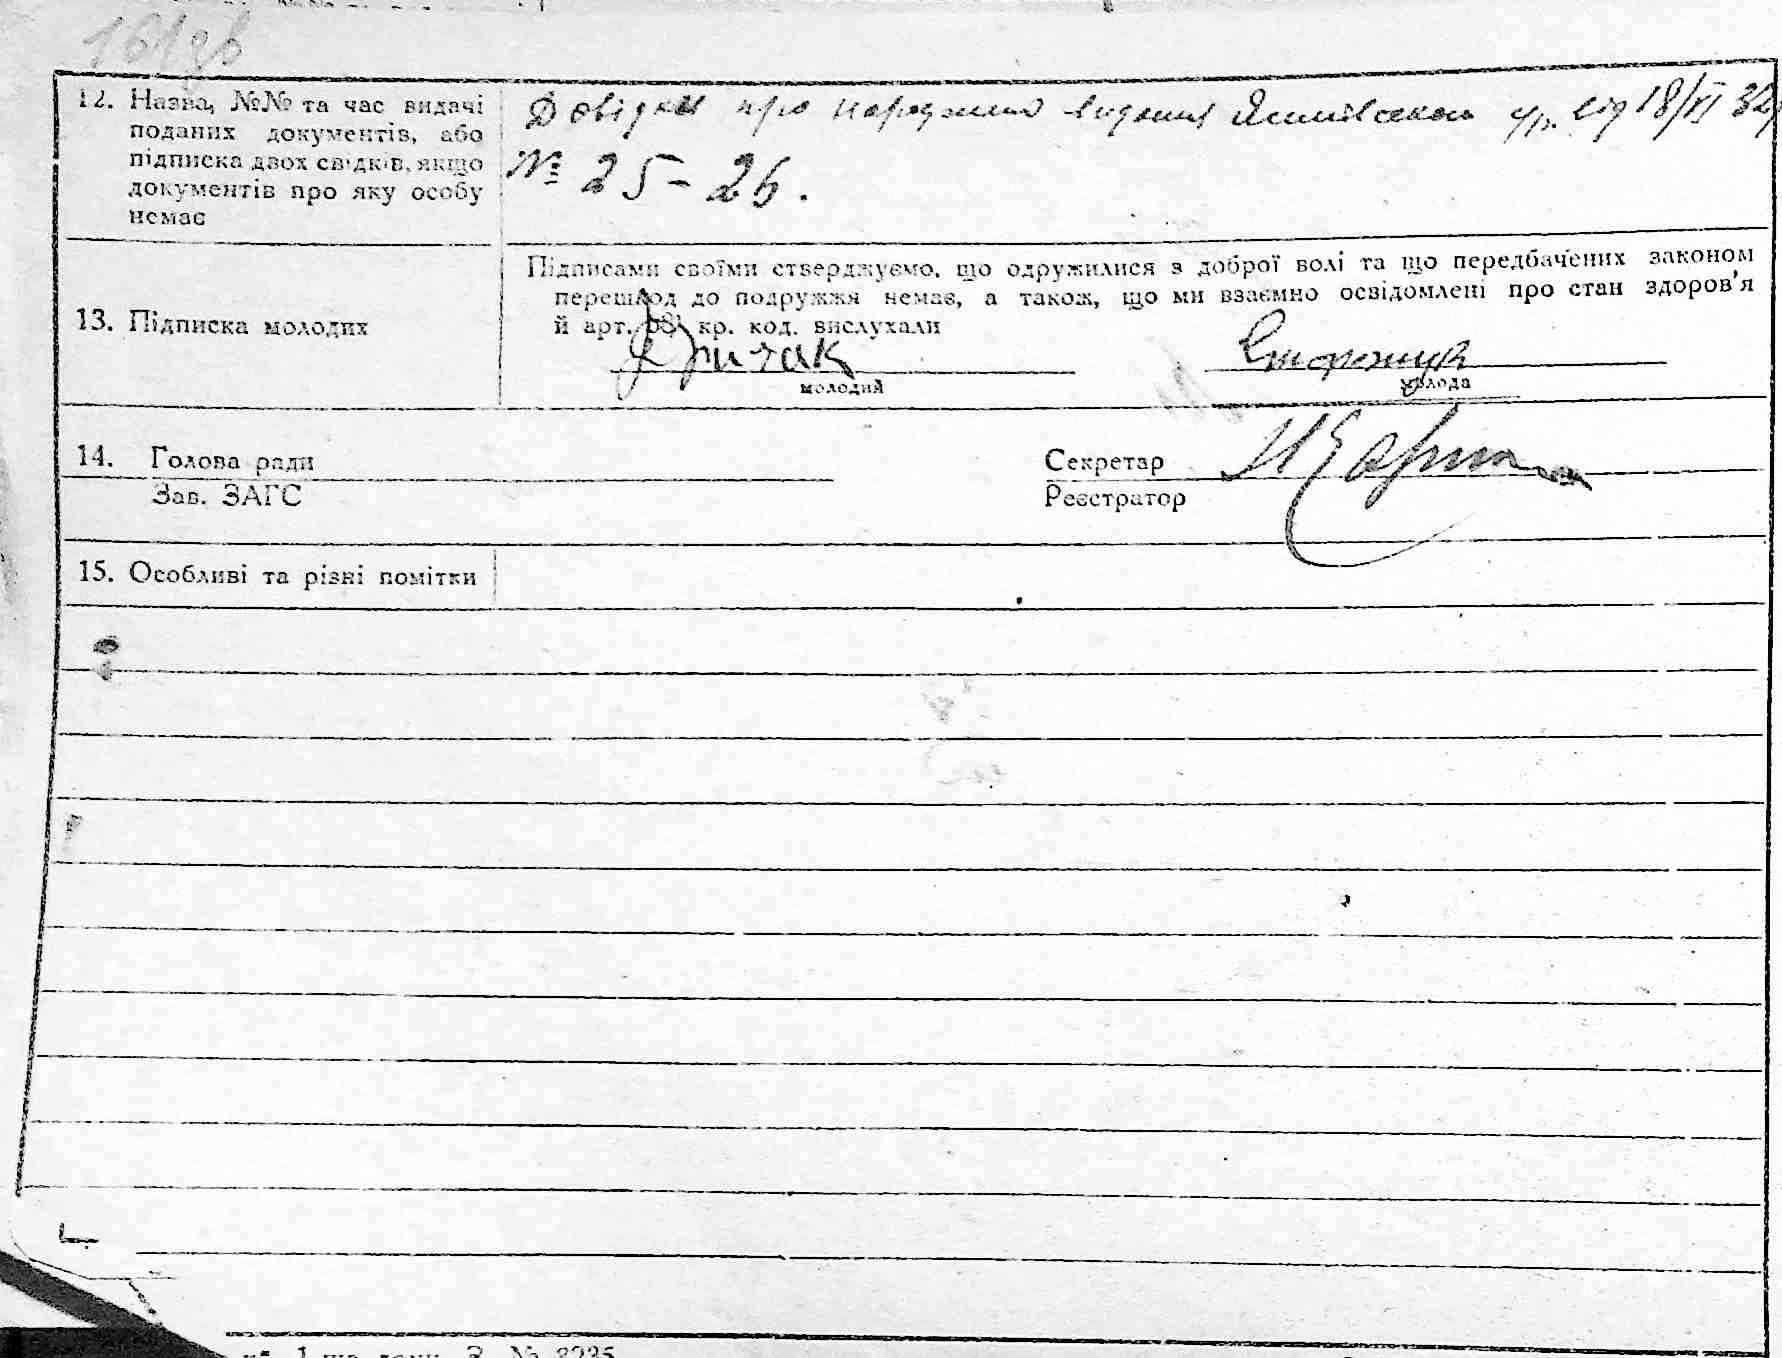 12. Назва, №№ та час видачі
поданих документів, або
підписка двох свідків, якщо
документів про яку особу
немає
Довідки про народження видані с/р. від 18/VI 32р
№ 25-26.
13. Підписка молодих
Підписами своїми стверджуємо, що одружилися з доброї волі та що передбачених законом
перешкод до подружжя немає, а також, що ми взаємно освідомлені про стан здоров'я
й арт. кр. код. вислухали
Гричак
молодий
молода
14. Голова ради
Зав. ЗАГС
Секретар
Реєстратор
15. Особливі та різні помітки